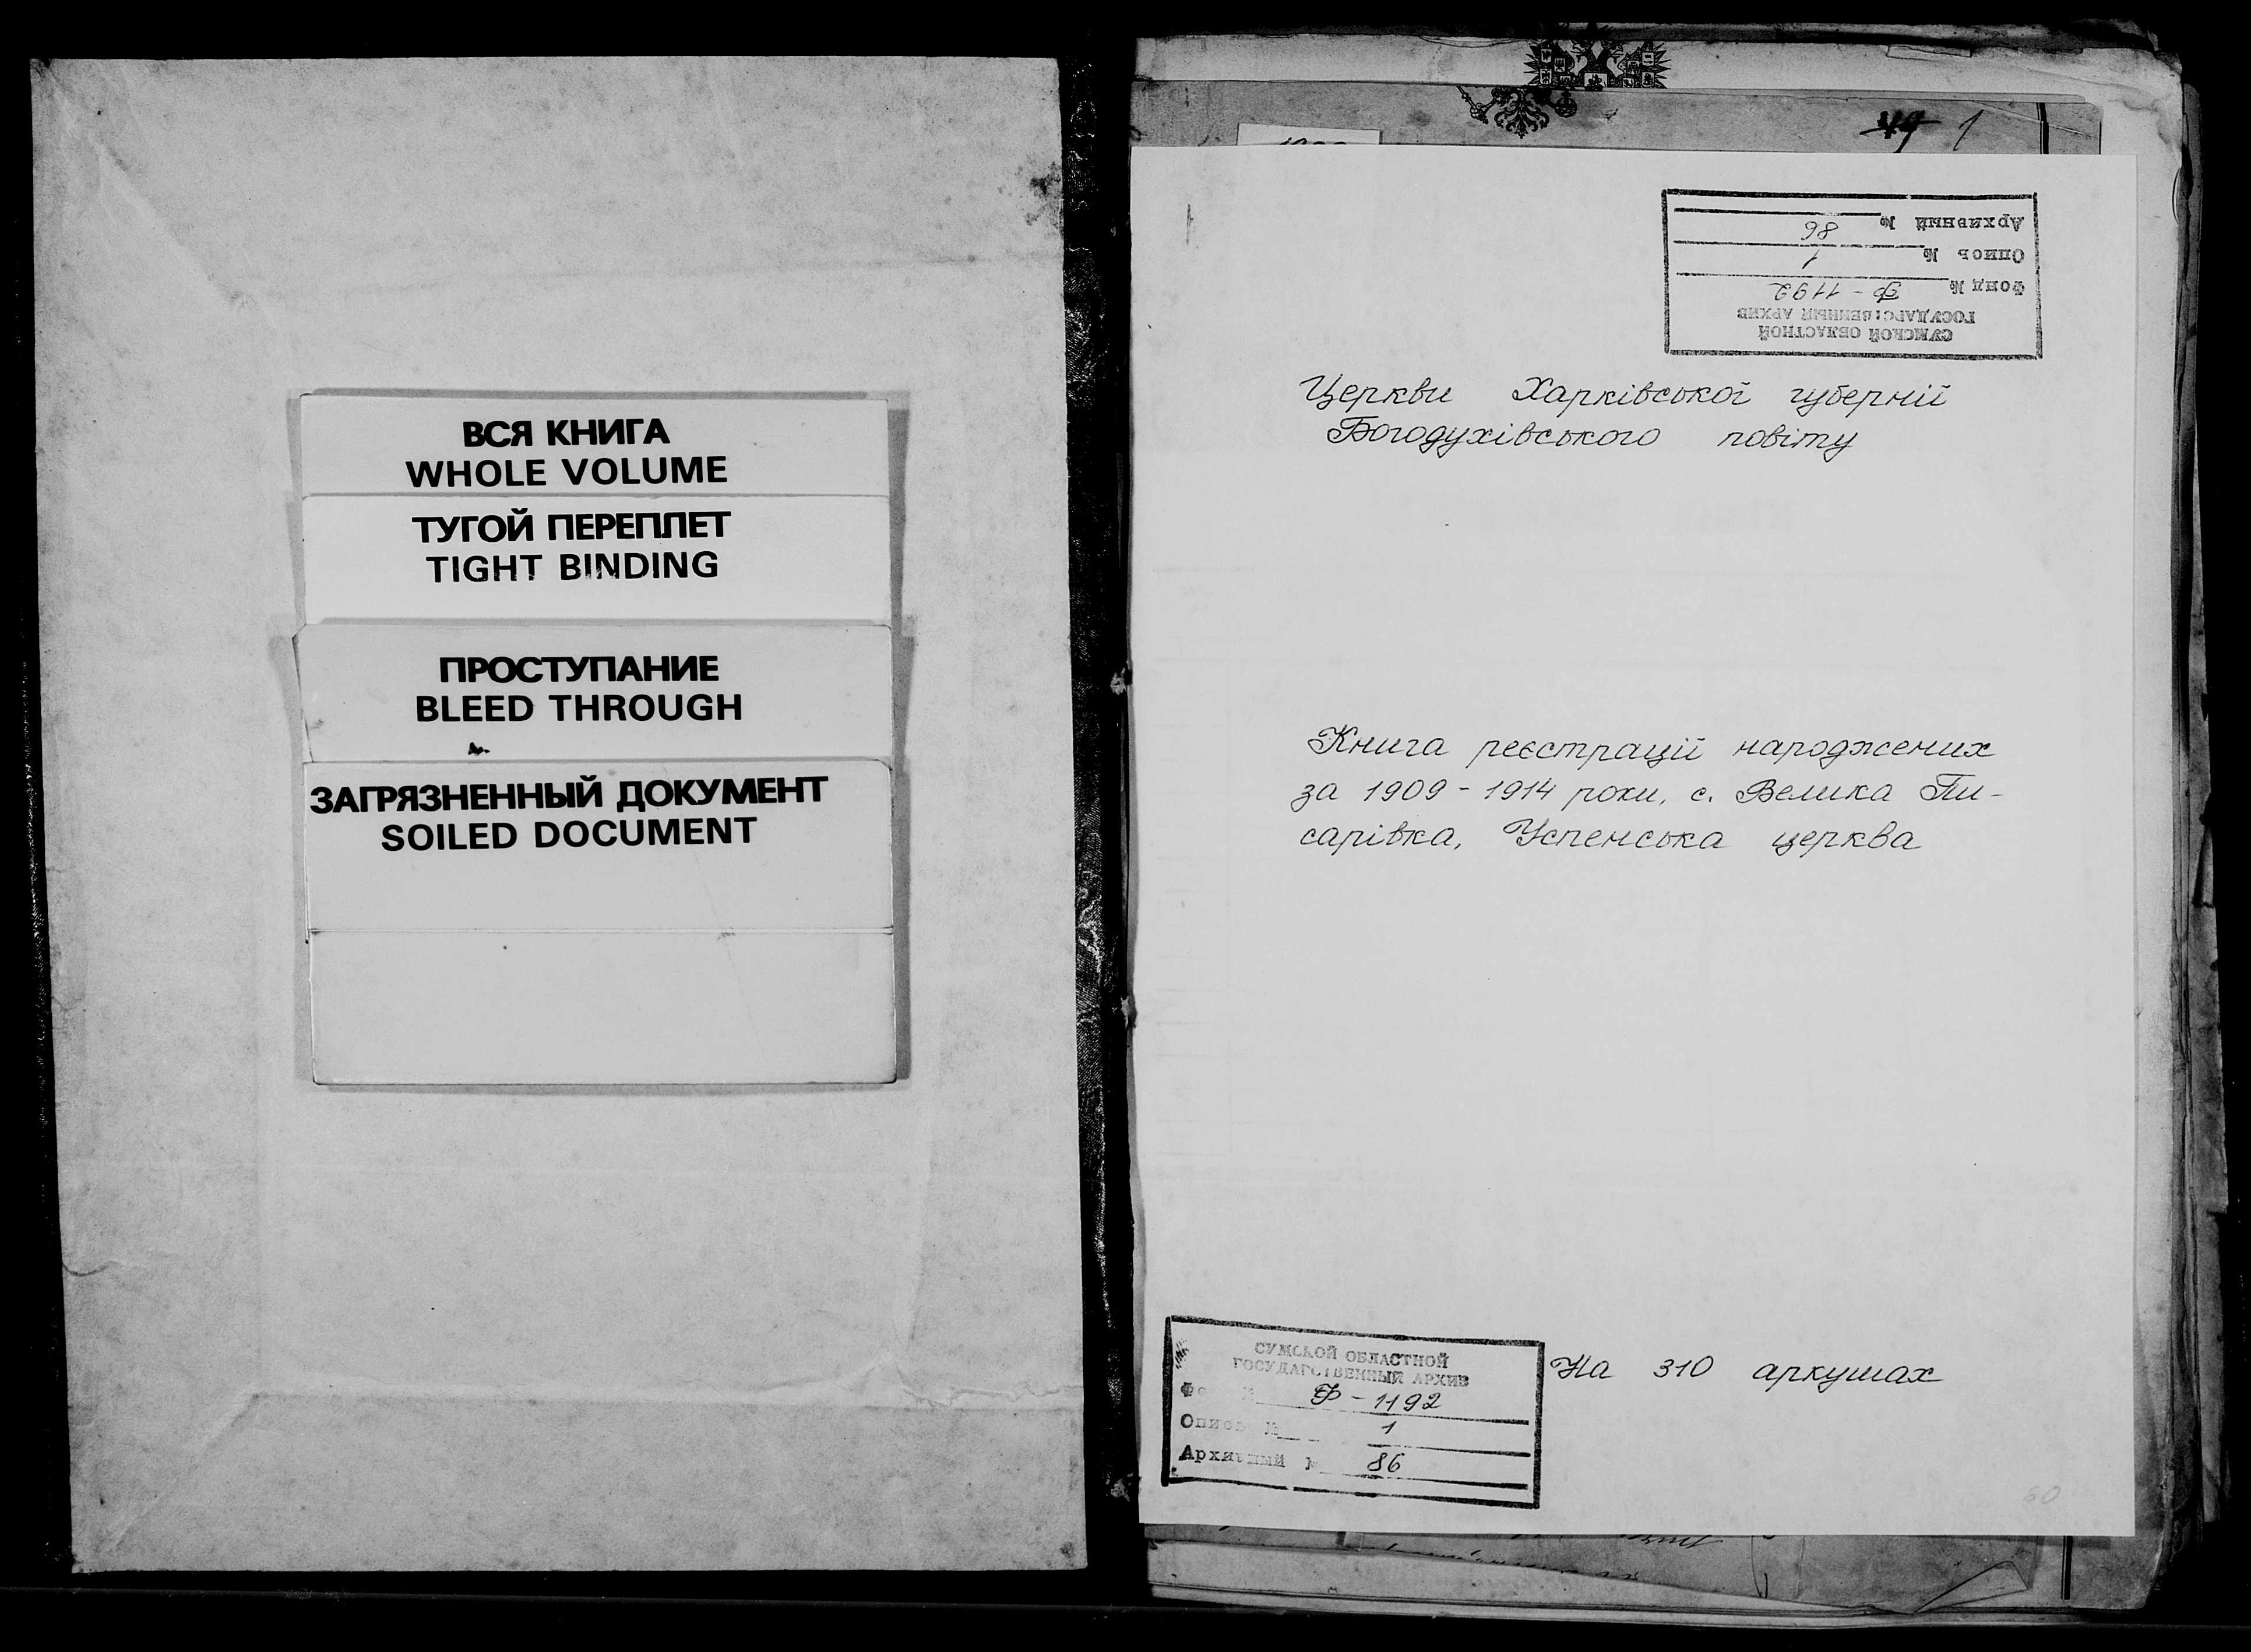 ВСЯ КНИГА
WHOLE VOLUME
ТУГОЙ ПЕРЕПЛЕТ
TIGHT BINDING
ПРОСТУПАНИЕ
BLEED THROUGH
ЗАГРЯЗНЕННЫЙ ДОКУМЕНТ
SOILED DOCUMENT
49 1
СУМСКОЙ ОБЛАСТНОЙ
ГОСУДАРСТВЕННЫЙ АРХИВ
Фонд № Ф-1192
Опись № 1
Архивный № 86
Церкви Харківської губернії
Богодухівського повіту
Книга реєстрації народжених
за 1909-1914 роки, с. Велика Пи-
сарівка, Успенська церква
СУМСКОЙ ОБЛАСТНОЙ
ГОСУДАРСТВЕННЫЙ АРХИВ
Ф-1192
Опись № 1
Архивный № 86
На 310 аркушах
60